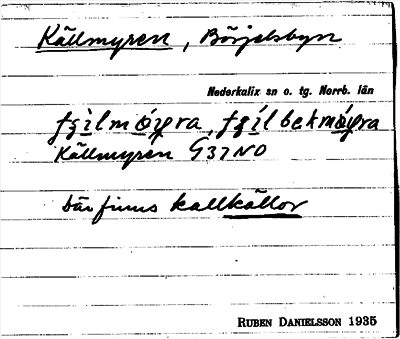 Källmyren, Börjelsbyn
Nederkalix sn o. tg. Norrb. län
Källmyren G37NO
Där finns kallkällor
RUBEN DANIELSSON 1935